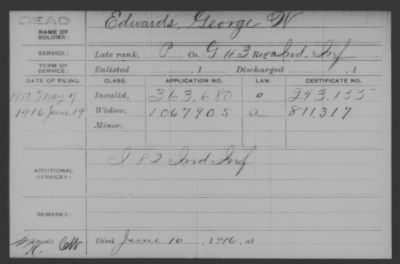 DEAD
NAME OF SOLDIER: Edwards George W
SERVICE: Late rank, P Co. G 43 Reg't Ind. Inf
TERM OF SERVICE: Enlisted , 1 Discharged , 1
DATE OF FILING. CLASS. APPLICATION NO. LAW. CERTIFICATE NO.
May 7 Invalid, 363,680 293,155
1916 June 19 Widow, 1067905 a 811,317
Minor,
ADDITIONAL SERVICES: I 82 Ind Inf
REMARKS:
Died June 10, 1916, at